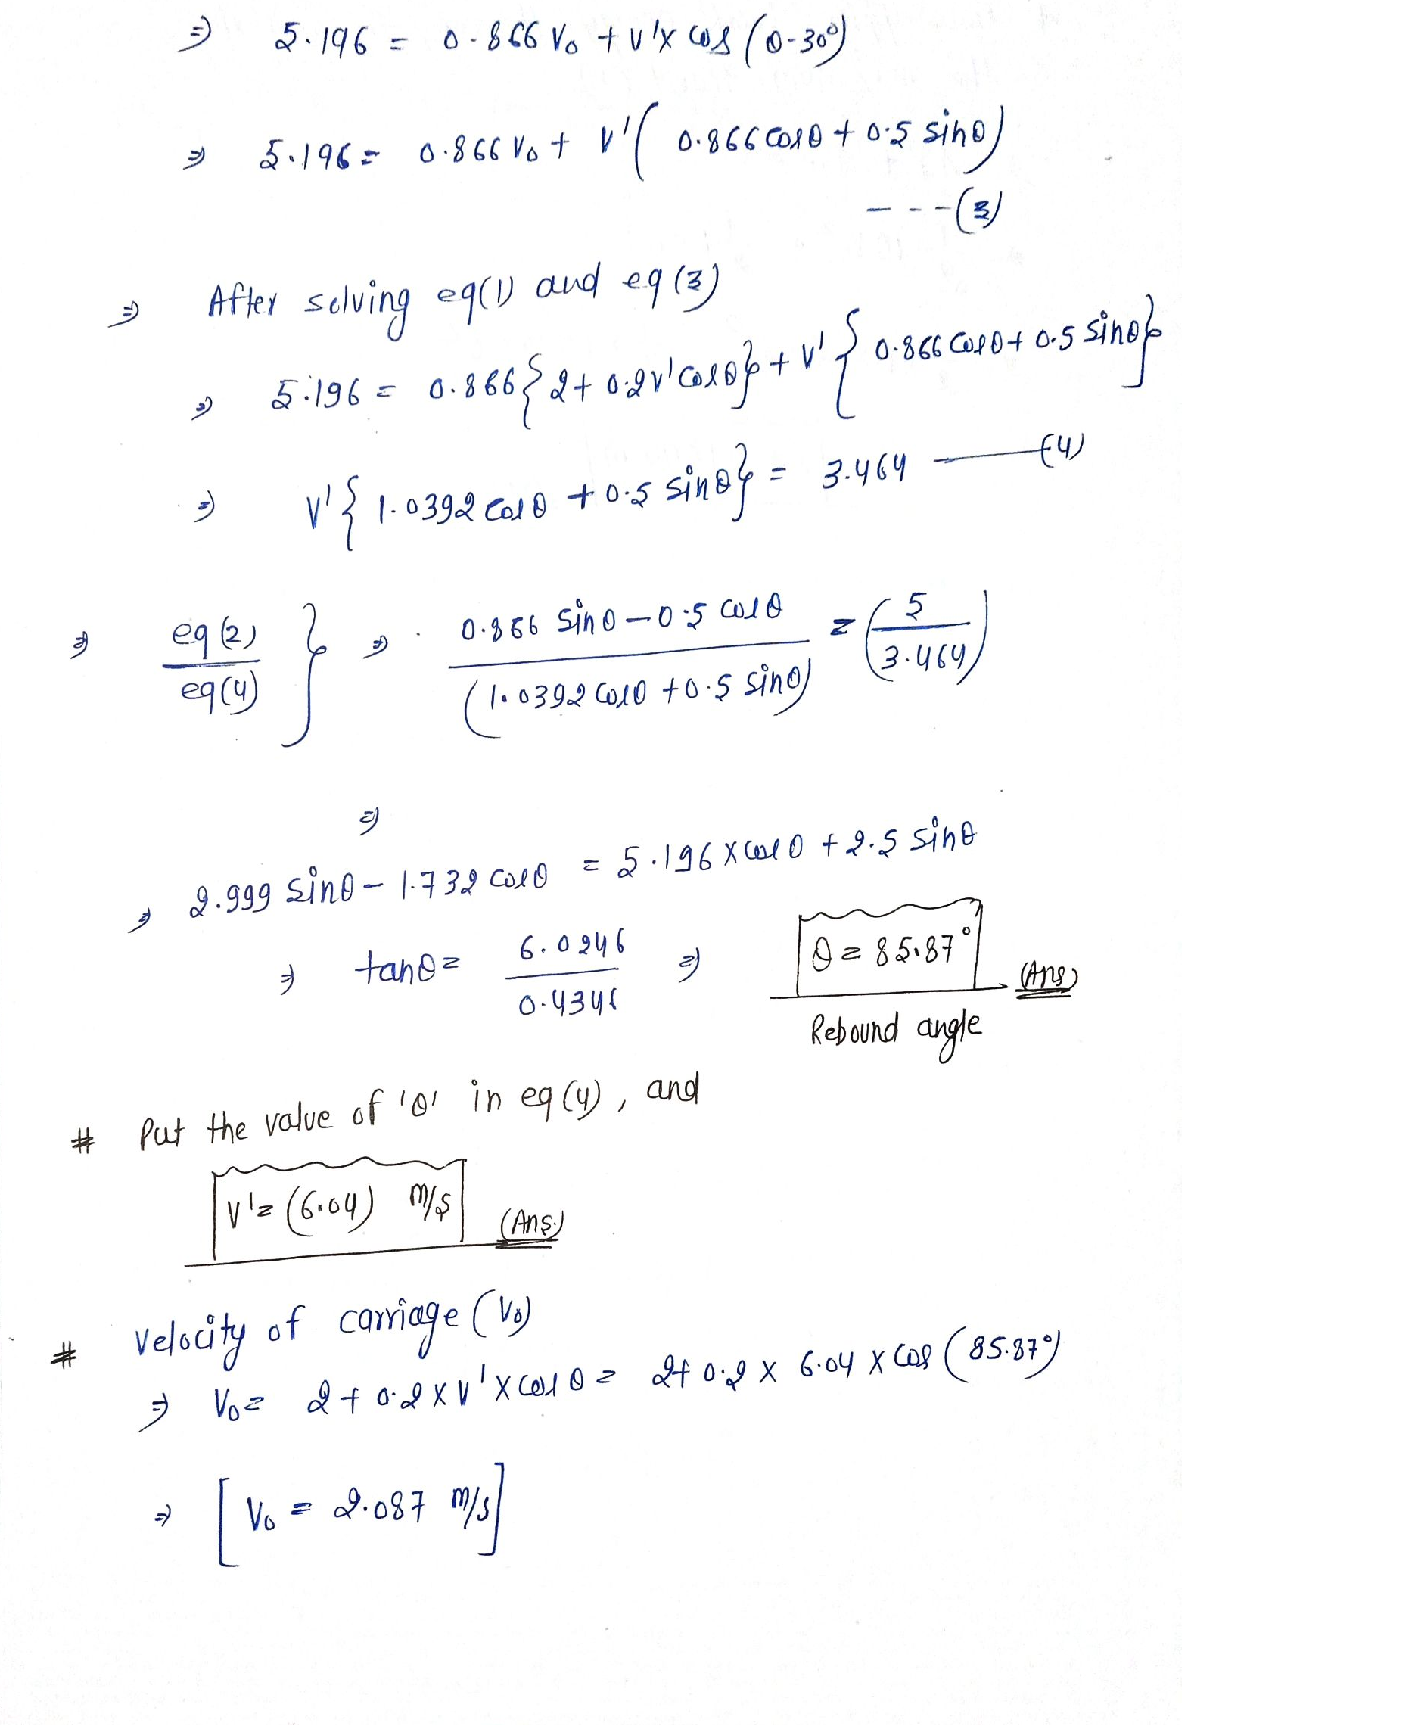 ⇒ 5.196 = 0.866 V₀ + V'x cos (θ-30°)
⇒ 5.196 = 0.866 V₀ + V' ( 0.866 cosθ + 0.5 sinθ)
- - - (3)
⇒ After solving eq(1) and eq (3)
⇒ 5.196 = 0.866 { 2 + 0.2v' cosθ} + v' { 0.866 cosθ + 0.5 sinθ}
⇒ V' { 1.0392 cosθ + 0.5 sinθ} = 3.464 — (4)
⇒ eq (2) / eq (4) } ⇒ 0.866 sinθ - 0.5 cosθ / (1.0392 cosθ + 0.5 sinθ) = (5 / 3.464)
⇒
⇒ 2.999 sinθ - 1.732 cosθ = 5.196 x cosθ + 2.5 sinθ
⇒ tanθ = 6.0246 / 0.434 ⇒ θ = 85.87° (Ans)
Rebound angle
# Put the value of 'θ' in eq (4), and
V' = (6.04) m/s (Ans.)
# Velocity of carriage (V₀)
⇒ V₀ = 2 + 0.2 x V' x cosθ = 2 + 0.2 x 6.04 x cos (85.87°)
⇒ [ V₀ = 2.087 m/s ]